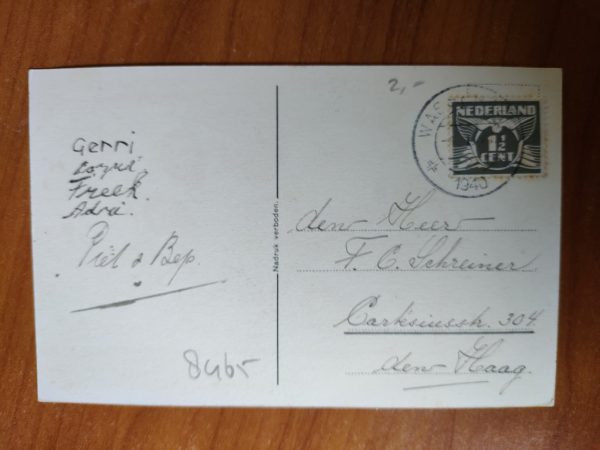 Gerri
Freek.
Adri.
Piet & Bep.
8465
Nadruk verboden.
2,-
WAS
1940
NEDERLAND
1½
CENT
den Heer
F. C. Schreiner
304
den Haag.